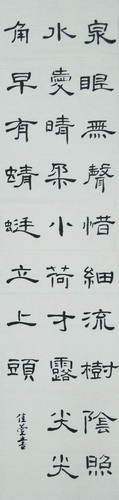 泉眼無聲惜細流樹陰照
水愛晴柔小荷才露尖尖
角早有蜻蜓立上頭